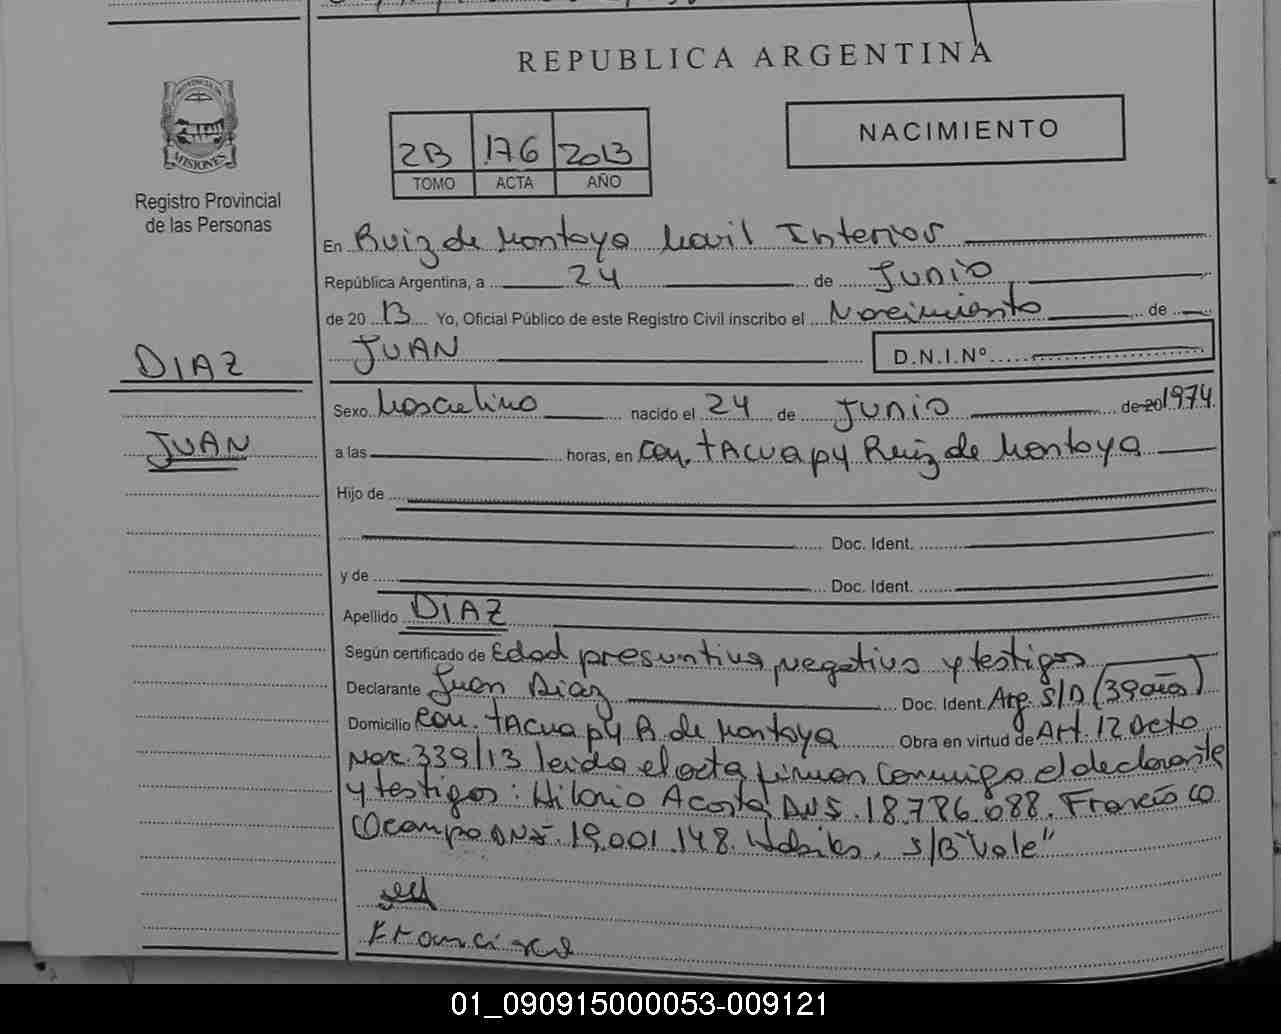 REPUBLICA ARGENTINA
PROVINCIA DE
MISIONES
Registro Provincial
de las Personas
2B 176 2013
TOMO ACTA AÑO
NACIMIENTO
En Ruiz de Montoya Movil Interior
República Argentina, a 24 de Junio
de 20 13 Yo, Oficial Público de este Registro Civil inscribo el Nacimiento de
JUAN D.N.I.Nº
DIAZ
JUAN
Sexo Masculino nacido el 24 de Junio de 20 1974
a las horas, en Com. tacuapy Ruiz de Montoya
Hijo de
Doc. Ident.
y de Doc. Ident.
Apellido DIAZ
Según certificado de Edad presuntiva, negativa y testigos
Declarante Juan Diaz Doc. Ident. Arg. S/D (39 años)
Domicilio Com. tacuapy R. de Montoya Obra en virtud de Art. 12 Dcto
Nac. 339/13 leida el acta firman conmigo el declarante
y testigos: Hilario Acosta DNI. 18.786.088. Francisco
Ocampo DNI. 19.001.148. Habiles. S/B "Vale"
01_090915000053-009121